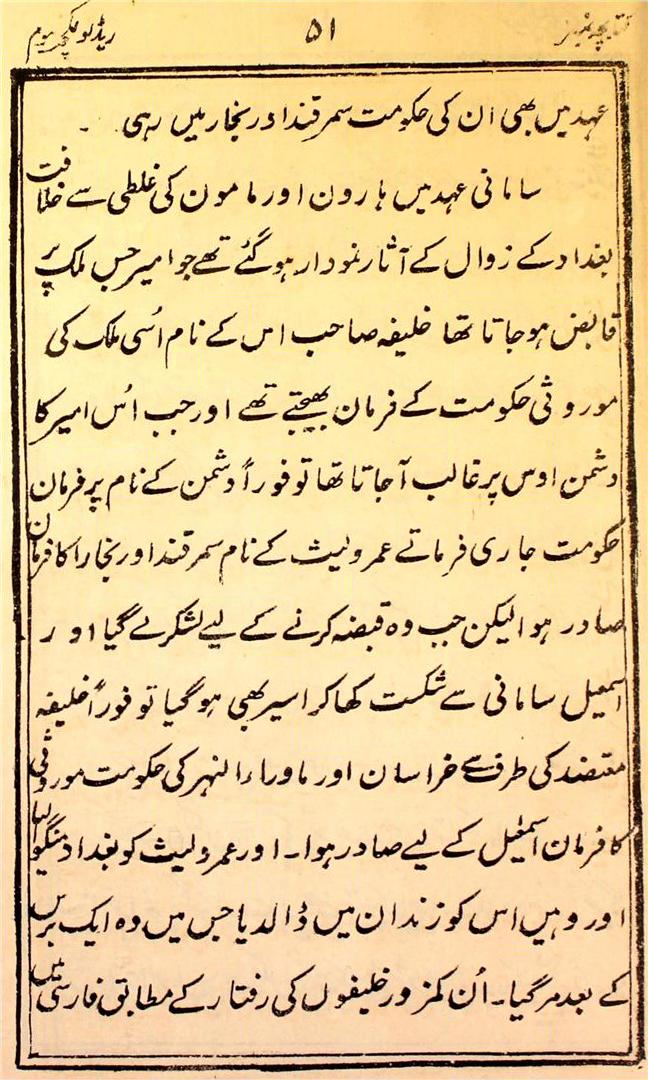 ۵۱
ریڈلو لکچر سوم
عہد میں بھی ان کی حکومت سمرقند اور بخارا میں رہی۔
سامانی عہد میں ہارون اور مامون کی غلطی سے خلافت
بغداد کے زوال کے آثار نمودار ہوگئے تھے جو امیر جس ملک پر
قابض ہوجاتا تھا خلیفہ صاحب اس کے نام اُسی ملک کی
موروثی حکومت کے فرمان بھیجتے تھے اور جب اُس امیر کا
دشمن اوس پر غالب آجاتا تھا تو فوراً دشمن کے نام پر فرمان
حکومت جاری فرماتے عمرولیث کے نام سمرقند اور بخارا کا فرمان
صادر ہوا لیکن جب وہ قبضہ کرنے کے لیے لشکر لے گیا اور
اسمٰعیل سامانی سے شکست کھاکر اسیر بھی ہوگیا تو فوراً خلیفہ
معتضد کی طرف سے خراسان اور ماوراءالنہر کی حکومت موروثی
کا فرمان اسمٰعیل کے لیے صادر ہوا۔ اور عمرولیث کو بغداد منگوالیا
اور وہیں اس کو زندان میں ڈالدیا جس میں وہ ایک برس
کے بعد مرگیا۔ اُن کمزور خلیفوں کی رفتار کے مطابق فارسی میں